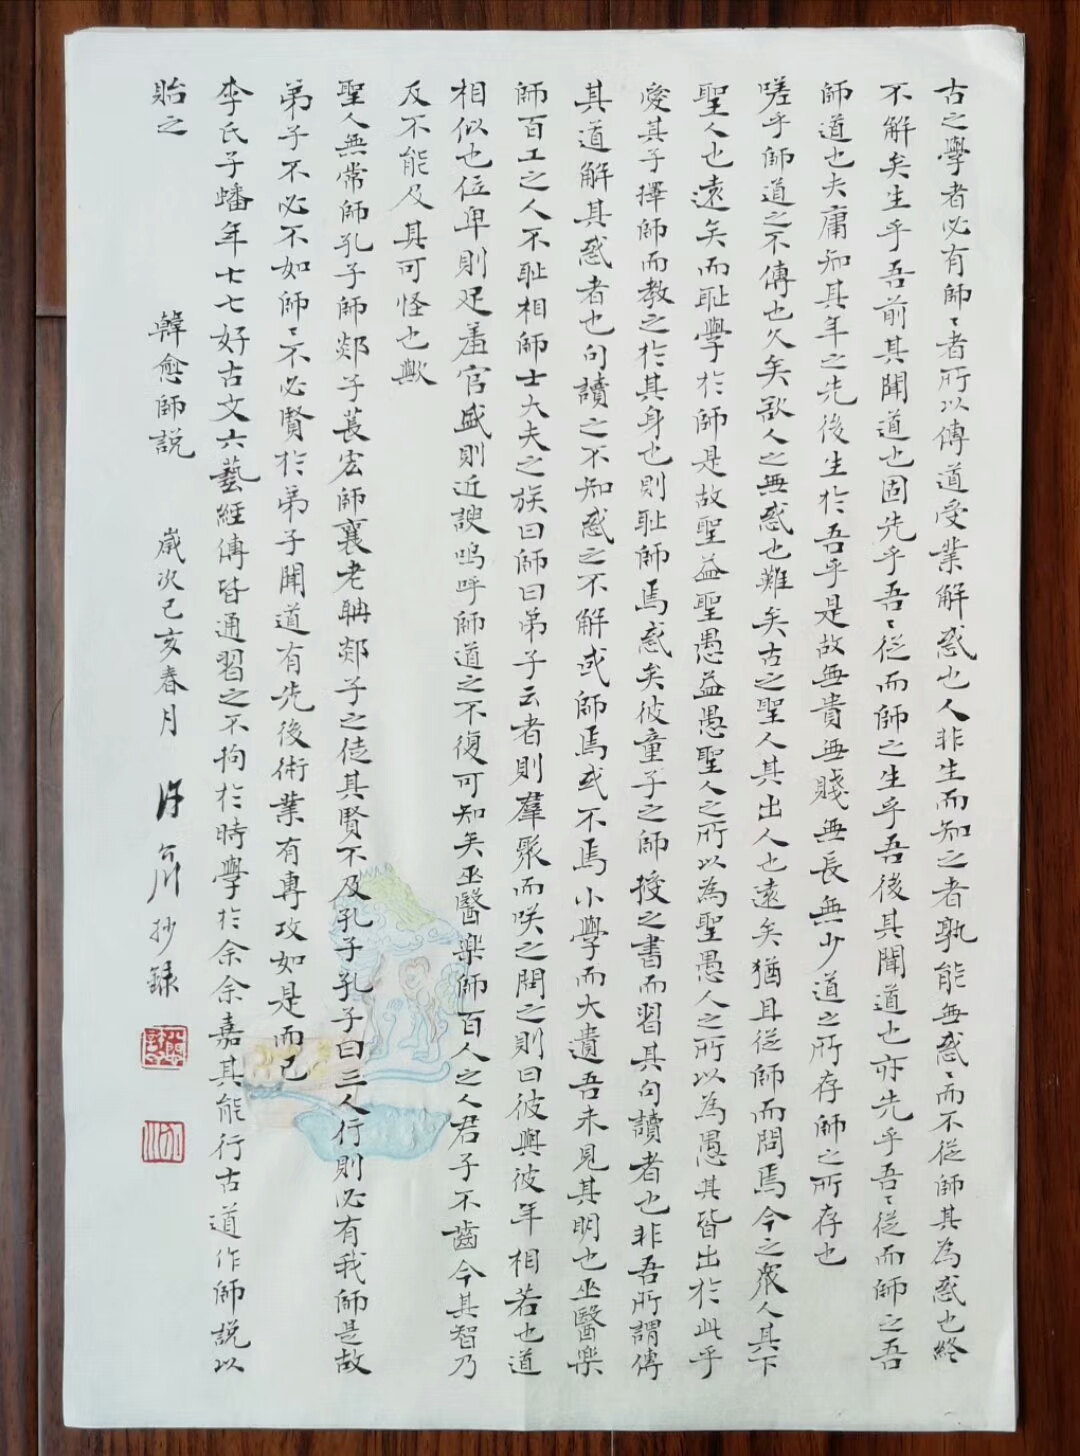 古之學者必有師〻者所以傳道受業解惑也人非生而知之者孰能無惑〻而不從師其為惑也終
不解矣生乎吾前其聞道也固先乎吾〻從而師之生乎吾後其聞道也亦先乎吾〻從而師之吾
師道也夫庸知其年之先後生於吾乎是故無貴無賤無長無少道之所存師之所存也
嗟乎師道之不傳也久矣欲人之無惑也難矣古之聖人其出人也遠矣猶且從師而問焉今之衆人其下
聖人也遠矣而耻學於師是故聖益聖愚益愚聖人之所以為聖愚人之所以為愚其皆出於此乎
愛其子擇師而教之於其身也則耻師焉惑矣彼童子之師授之書而習其句讀者也非吾所謂傳
其道解其惑者也句讀之不知惑之不解或師焉或不焉小學而大遺吾未見其明也巫醫樂
師百工之人不耻相師士大夫之族曰師曰弟子云者則羣聚而咲之問之則曰彼與彼年相若也道
相似也位卑則足羞官盛則近諛嗚呼師道之不復可知矣巫醫樂師百人之人君子不齒今其智乃
反不能及其可怪也歟
聖人無常師孔子師郯子萇宏師襄老聃郯子之徒其賢不及孔子孔子曰三人行則必有我師是故
弟子不必不如師〻不必賢於弟子聞道有先後術業有專攻如是而已
李氏子蟠年十七好古文六藝經傳皆通習之不拘於時學於余余嘉其能行古道作師説以
貽之 韓愈師説 歲次己亥春月 抄録